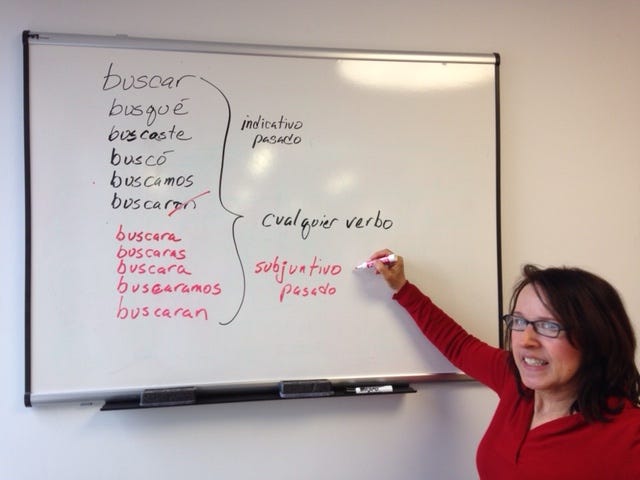 buscar
busqué
buscaste
buscó
buscamos
buscaron
indicativo
pasado
cualquier verbo
buscara
buscaras
buscara
buscaramos
buscaran
subjuntivo
pasado